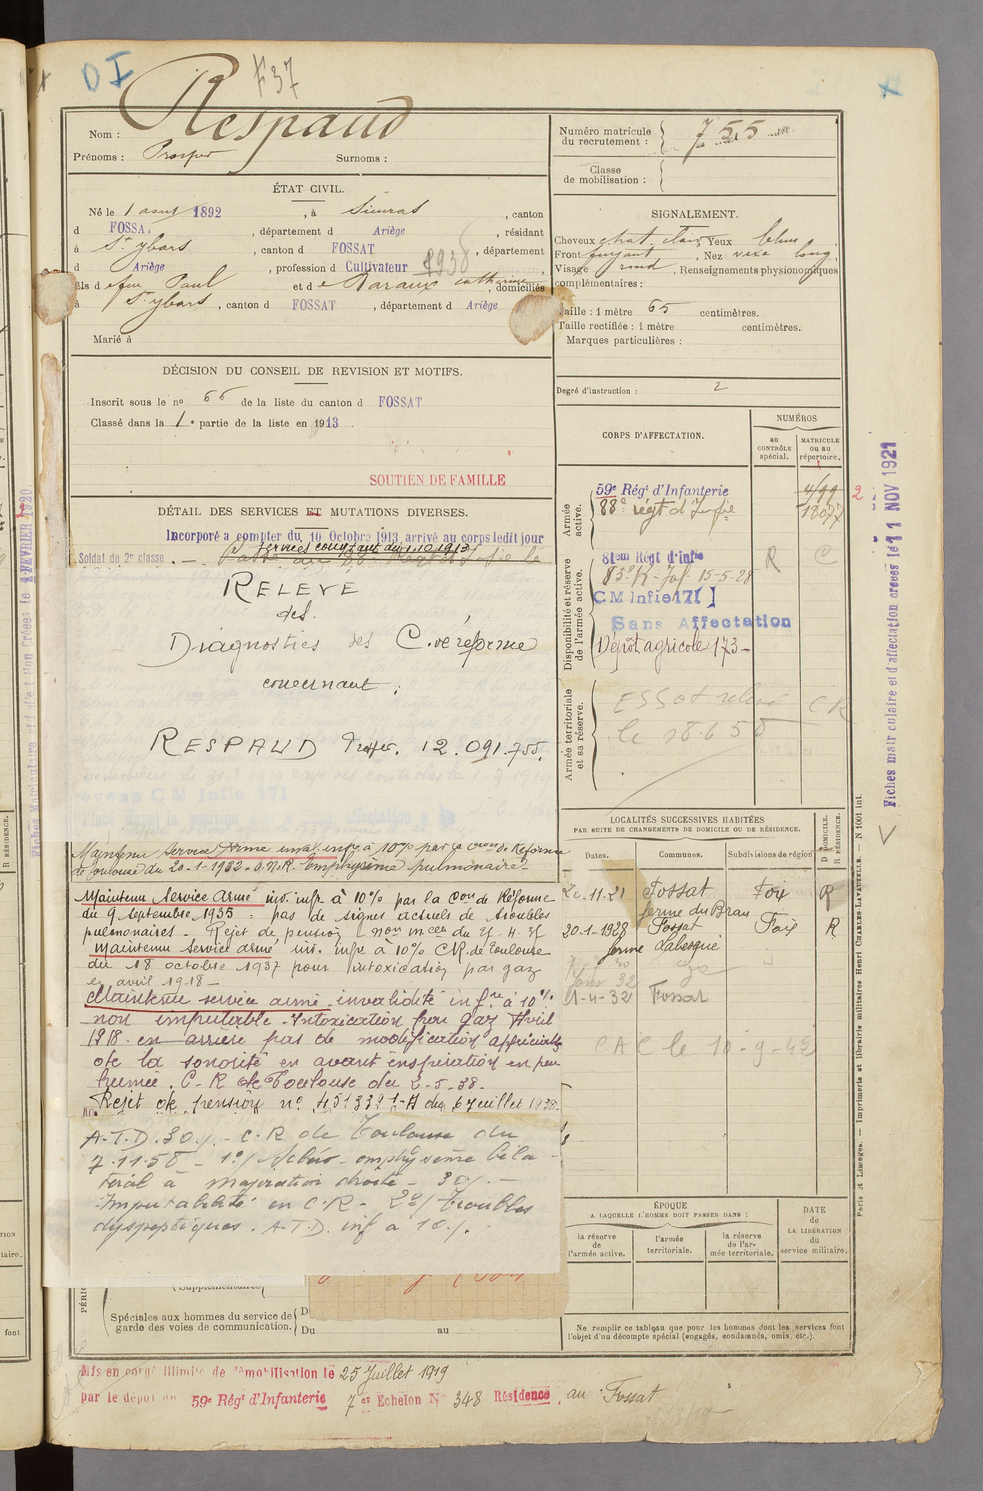 F37
Respaud
Nom :
Prénoms : Prosper Surnoms :
Numéro matricule
du recrutement : 755
Classe
de mobilisation :
ÉTAT CIVIL.
Né le 1 aout 1892, à Sieuras, canton
d FOSSAT, département d Ariège, résidant
à St Ybars, canton d FOSSAT, département
d Ariège, profession d Cultivateur 1938
fils d e feu Paul et d e Raraux Catherine, domiciliés
à St Ybars, canton d FOSSAT, département d Ariège
Marié à
SIGNALEMENT.
Cheveux chat. clair Yeux bleus
Front fuyant, Nez vexe long.
Visage rond, Renseignements physionomiques
complémentaires :
Taille : 1 mètre 65 centimètres.
Taille rectifiée : 1 mètre centimètres.
Marques particulières :
Degré d'instruction : 2
DÉCISION DU CONSEIL DE REVISION ET MOTIFS.
Inscrit sous le no 66 de la liste du canton d FOSSAT
Classé dans la 1e partie de la liste en 1913
SOUTIEN DE FAMILLE
DÉTAIL DES SERVICES ET MUTATIONS DIVERSES.
Incorporé a compter du 10 Octobre 1913, arrivé au corps ledit jour
services comptant du 1.10.1913
Soldat de 2e classe
RELEVE
des
Diagnostics des C. de réforme
concernant :
RESPAUD Prosper. 12.091.755.
evenu CM Infie 171
Maintenu Service Armé inval. infre à 10% par la Con de Réforme
de Toulouse du 20-1-1932 - Emphysème pulmonaire -
Maintenu Service Armé inv. infr à 10% par la Con de Réforme
du 9 septembre 1935 - pas de signes actuels de troubles
pulmonaires - Rejet de pension
Maintenu service armé inv. infr à 10% CR. de Toulouse
du 18 octobre 1937 pour intoxication par gaz
en avril 1918 -
Maintenu service armé - invalidité infre à 10%
non imputable - Intoxication par gaz Avril
1918. en arrière pas de modification appréciable
de la sonorité en avant inspiration en peu
humée. C-R de Toulouse du 2-5-38.
Rejet de pension no 451339 1-A du 6 juillet 1938.
A.T.D. 30% - C.R de Toulouse du
7.11.58 - 1o/ Scléro-emphysème bila-
teral à majoration droite - 30% -
Imputabilité en C.R - 2o/ Troubles
dyspeptiques. A.T.D. inf à 10%.
CORPS D'AFFECTATION.
NUMÉROS
au CONTRÔLE spécial.
MATRICULE ou au répertoire.
Armée active.
59e Régt d'Infanterie
88e régt d'Infie
18077
Disponibilité et réserve de l'armée active.
81em Régt d'infie R C
83e R. Inf. 15-5-28
CM Infie 171
Sans Affectation
Dépôt agricole 173 -
Armée territoriale et sa réserve.
le 18.6.58
LOCALITÉS SUCCESSIVES HABITÉES
PAR SUITE DE CHANGEMENTS DE DOMICILE OU DE RÉSIDENCE.
Dates. Communes. Subdivisions de région D DOMICILE. R RÉSIDENCE.
11.21 Fossat Foix R
ferme du Brau
20-1-1928 Fossat Foix R
ferme Labesque
1-4-32 Fossat
CAC le 10-9-42
ÉPOQUE
A LAQUELLE L'HOMME DOIT PASSER DANS :
la réserve de l'armée active.
l'armée territoriale.
la réserve de l'armée territoriale.
DATE de LA LIBÉRATION du service militaire.
Ne remplir ce tableau que pour les hommes dont les services font
l'objet d'un décompte spécial (engagés, condamnés, omis, etc.).
Spéciales aux hommes du service de
garde des voies de communication.
Du au
Mis en congé illimité de démobilisation le 25 Juillet 1919
par le dépôt du 59e Régt d'Infanterie 7er Echelon No 348 Résidence au Fossat
Fiches matriculaire et d'affectation créées le 11 NOV 1921
Paris et Limoges. — Imprimerie et librairie militaires Henri CHARLES-LAVAUZELLE. — N 1001 int.